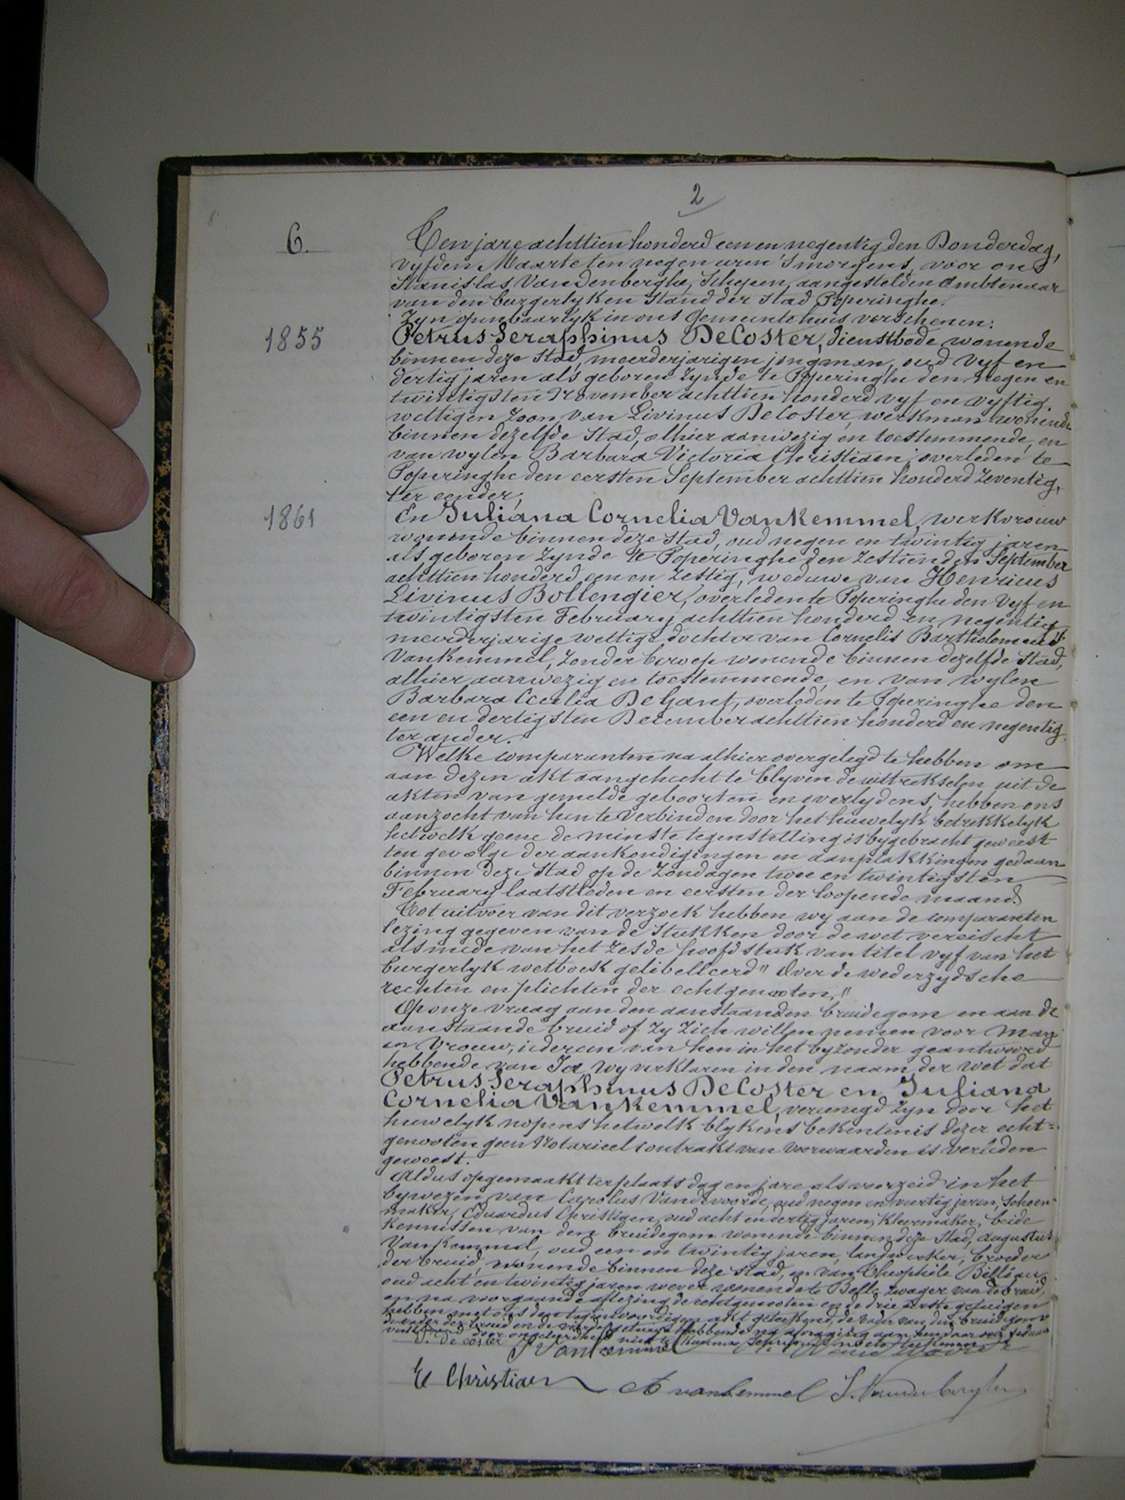 2
6.
Ten jare achttien honderd een en negentig den Donderdag,
vyfden Maarte ten negen uren 's morgens, voor ons
Stanislas Vandenberghe, Schepen, aangestelden Ambtenaar
van den burgerlyken Stand der Stad Poperinghe.
Zyn openbaarlyk in ons Gemeentehuis verschenen:
1855
Petrus Seraphinus DeCoster, dienstbode wonende
binnen deze Stad, meerderjarigen jongman, oud vyf en
dertig jaren als geboren zynde te Poperinghe den negen en
twintigsten November achttien honderd vyf en vyftig,
wettigen zoon van Livinus DeCoster, werkman wonende
binnen dezelfde Stad, alhier aanwezig en toestemmende, en
van wylen Barbara Victoria Christiaen, overleden te
Poperinghe den eersten September achttien honderd zeventig,
ter eender;
1861
En Juliana Cornelia Vankemmel, werkvrouw
wonende binnen deze Stad, oud negen en twintig jaren
als geboren zynde te Poperinghe den zestienden September
achttien honderd een en zestig, weduwe van Henricus
Livinus Bollengier, overleden te Poperinghe den vyf en
twintigsten February achttien honderd en negentig,
meerderjarige wettige dochter van Cornelis Bartholomeus
Vankemmel, zonder beroep wonende binnen dezelfde Stad,
alhier aanwezig en toestemmende, en van wylen
Barbara Cecilia DeGant, overleden te Poperinghe den
een en dertigsten December achttien honderd en negentig
ter ander.
Welke comparanten na alhier overgelegd te hebben om
aan dezen akt aangehecht te blyven de uittrekselen uit de
akten van gemelde geboorten en overlydens, hebben ons
aanzocht van hun te verbinden door het huwelyk betrekkelyk
hetwelk geene de minste tegenstelling is bygebracht geweest
ten gevolge der aankondigingen en aanplakkingen gedaan
binnen deze Stad op de Zondagen twee en twintigsten
February laatstleden en eersten der loopende maand.
Tot uitvoer van dit verzoek hebben wy aan de comparanten
lezing gegeven van de Stukken door de wet vereischt
alsmede van het zesde hoofdstuk van titel vyf van het
burgerlyk wetboek gelibelleerd "Over de wederzydsche
rechten en plichten der echtgenooten."
Op onze vraag aan den aanstaanden bruidegom en aan de
aanstaande bruid of zy zich willen nemen voor Man
en Vrouw, iedereen van hen in het byzonder geantwoord
hebbende van Ja, wy verklaren in den naam der wet dat
Petrus Seraphinus DeCoster en Juliana
Cornelia Vankemmel, vereenegd zyn door het
huwelyk nopens hetwelk blykens bekentenis dezer echt=
genooten geen Notarieel contrakt van voorwaarden is verleden
geweest.
Aldus opgemaakt ter plaats dag en jare als voorzeid in het
bywezen van Carolus Vandevoorde, oud negen en veertig jaren, Schoen=
maker, Eduardus Christiaen, oud acht en dertig jaren, Kleermaker, beide
kennissen van den bruidegom wonende binnen deze Stad, Augustus
Vankemmel, oud een en twintig jaren, landwerker, broeder
der bruid, wonende binnen deze Stad, en van Theophile Billiaert
oud acht en twintig jaren wever wonende te Belle, zwager van de bruid,
en na voorgaande aflezing de echtgenooten en de drie eerste getuigen
hebben met ons den tegenwoordigen akt geteekend, de vader van den bruidegom
P. De coster J Vankemmel
E Christiaen A vankemmel S. Vandenberghe